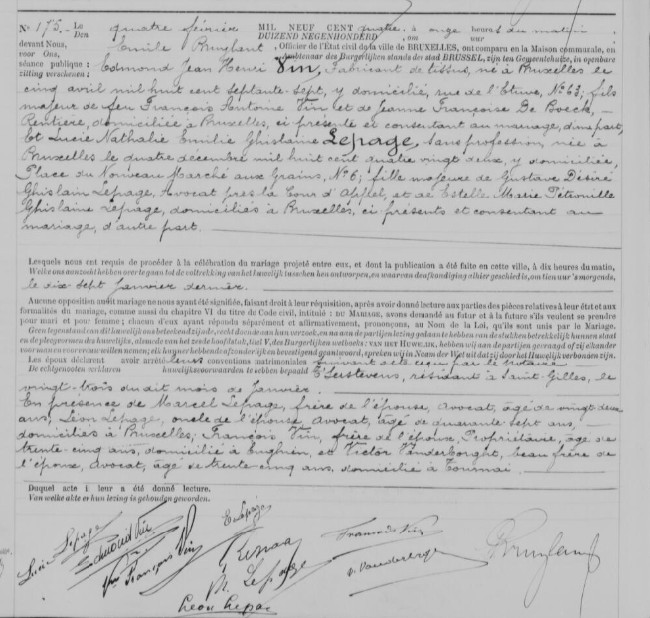 N° 175. Le Den quatre février MIL NEUF CENT quatre, à onze heures du matin,
DUIZEND NEGENHONDERD om uur
devant Nous, Emile Bruylant, Officier de l'État civil de la ville de BRUXELLES, ont comparu en la Maison communale, en
voor Ons, Ambtenaar des Burgerlijken stands der stad BRUSSEL, zijn ten Gemeentehuize, in openbare
séance publique : Edmond Jean Henri Vin, Fabricant de tissus, né à Bruxelles le
zitting verschenen :
cinq avril mil huit cent septante-sept, y domicilié, rue de l'Etuve, N° 63; fils
majeur de feu François Antoine Vin et de Jeanne Françoise De Boeck, –
Rentière, domiciliée à Bruxelles, ci présente et consentant au mariage, d'une part,
Et Lucie Nathalie Emilie Ghislaine Lepage, sans profession, née à
Bruxelles le quatre décembre mil huit cent quatre vingt deux, y domiciliée,
Place du Nouveau Marché aux Grains, N° 6; fille majeure de Gustave Désiré
Ghislain Lepage, Avocat près la Cour d'Appel, et de Estelle Marie Pétronille
Ghislaine Lepage, domiciliés à Bruxelles, ci présents et consentant au
mariage, d'autre part.
Lesquels nous ont requis de procéder à la célébration du mariage projeté entre eux, et dont la publication a été faite en cette ville, à dix heures du matin,
Welke ons aanzocht hebben over te gaan tot de voltrekking van het huwelijk tusschen hen ontworpen, en waarvan de afkondiging alhier geschied is, om tien uur 's morgends,
le dix sept Janvier dernier.
Aucune opposition audit mariage ne nous ayant été signifiée, faisant droit à leur réquisition, après avoir donné lecture aux parties des pièces relatives à leur état et aux
formalités du mariage, comme aussi du chapitre VI du titre du Code civil, intitulé : DU MARIAGE, avons demandé au futur et à la future s'ils veulent se prendre
pour mari et pour femme ; chacun d'eux ayant répondu séparément et affirmativement, prononçons, au Nom de la Loi, qu'ils sont unis par le Mariage.
Geen tegenstand van dit huwelijk ons beteekend zijnde, recht doende aan hun verzoek, en na aan de partijen lezing gedaan te hebben van de stukken betrekkelijk hunnen staat
en de pleegvormen des huwelijks, alsmede van het zesde hoofdstuk, titel V, des Burgerlijken wetboeks : VAN HET HUWELIJK, hebben wij aan de partijen gevraagd of zij elkander
voor man en vrouw willen nemen; elk hunner hebbende afzonderlijk en bevestigend geantwoord, spreken wij in Naam der Wet uit dat zij door het Huwelijk verbonden zijn.
Les époux déclarent avoir arrêté leurs conventions matrimoniales suivant acte reçu par le notaire
De echtgenooten verklaren huwelijksvoorwaarden te hebben bepaald T'Serstevens, résidant à Saint-Gilles, le
vingt-trois du dit mois de Janvier.
En présence de Marcel Lepage, frère de l'épouse, avocat, âgé de vingt deux
ans, Léon Lepage, oncle de l'épouse, Avocat, âgé de quarante sept ans, –
domiciliés à Bruxelles, François Vin, frère de l'époux, Propriétaire, âgé de
trente-cinq ans, domicilié à Enghien, et Victor Vanderborght, beau frère de
l'époux, Avocat, âgé de trente-cinq ans, domicilié à Tournai.
Duquel acte il leur a été donné lecture.
Van welke akte er hun lezing is gehouden geworden.
Lucie Lepage
Edmond Vin
François Vin
E. Lepage
M. Lepage
Léon Lepage